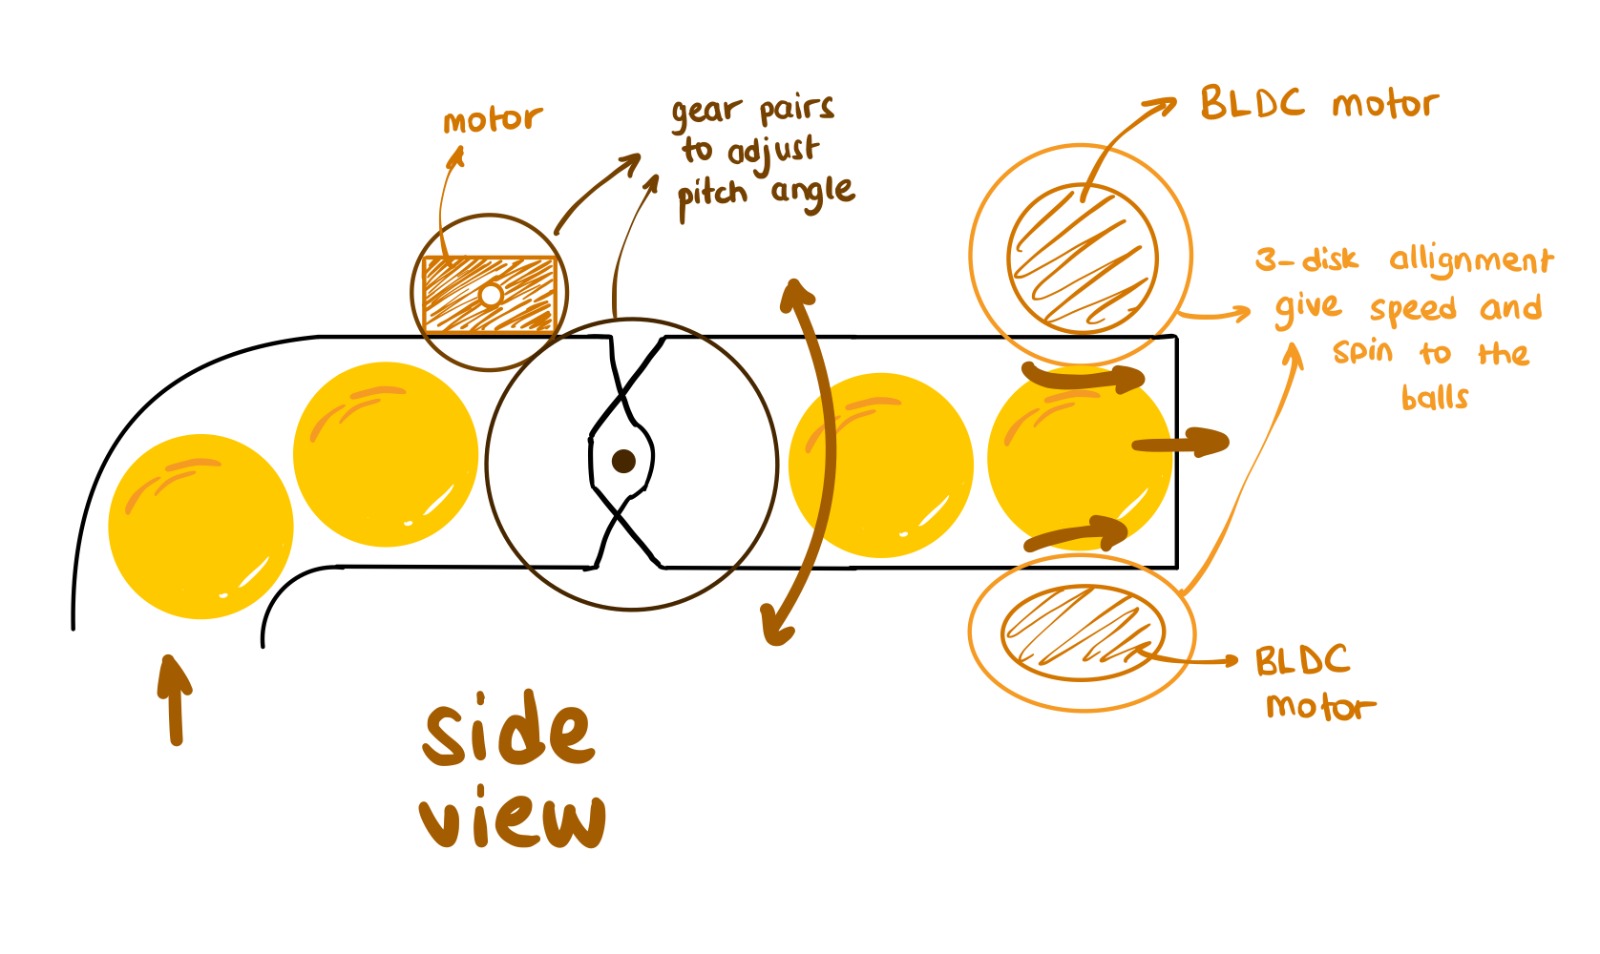 motor
gear pairs
to adjust
pitch angle
BLDC motor
3-disk allignment
give speed and
spin to the
balls
BLDC
motor
side
view